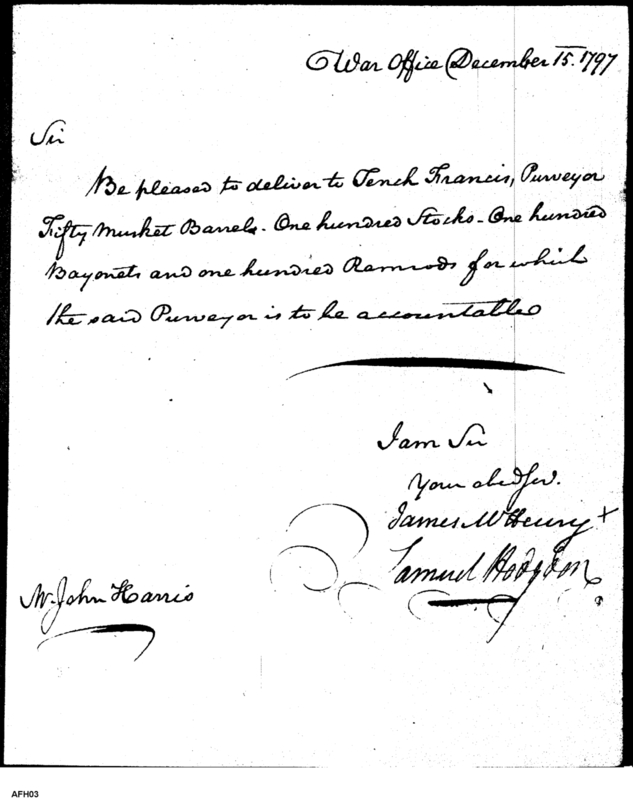 War Office December 15. 1797
Sir
Be pleased to deliver to Tench Francis, Purveyor
Fifty Musket Barrels - One hundred Stocks - One hundred
Bayonets and one hundred Ramrods for which
the said Purveyor is to be accountable
I am Sir
Your obed Ser.
James McHenry +
Samuel Hodgdon
Mr John Harris
AFH03